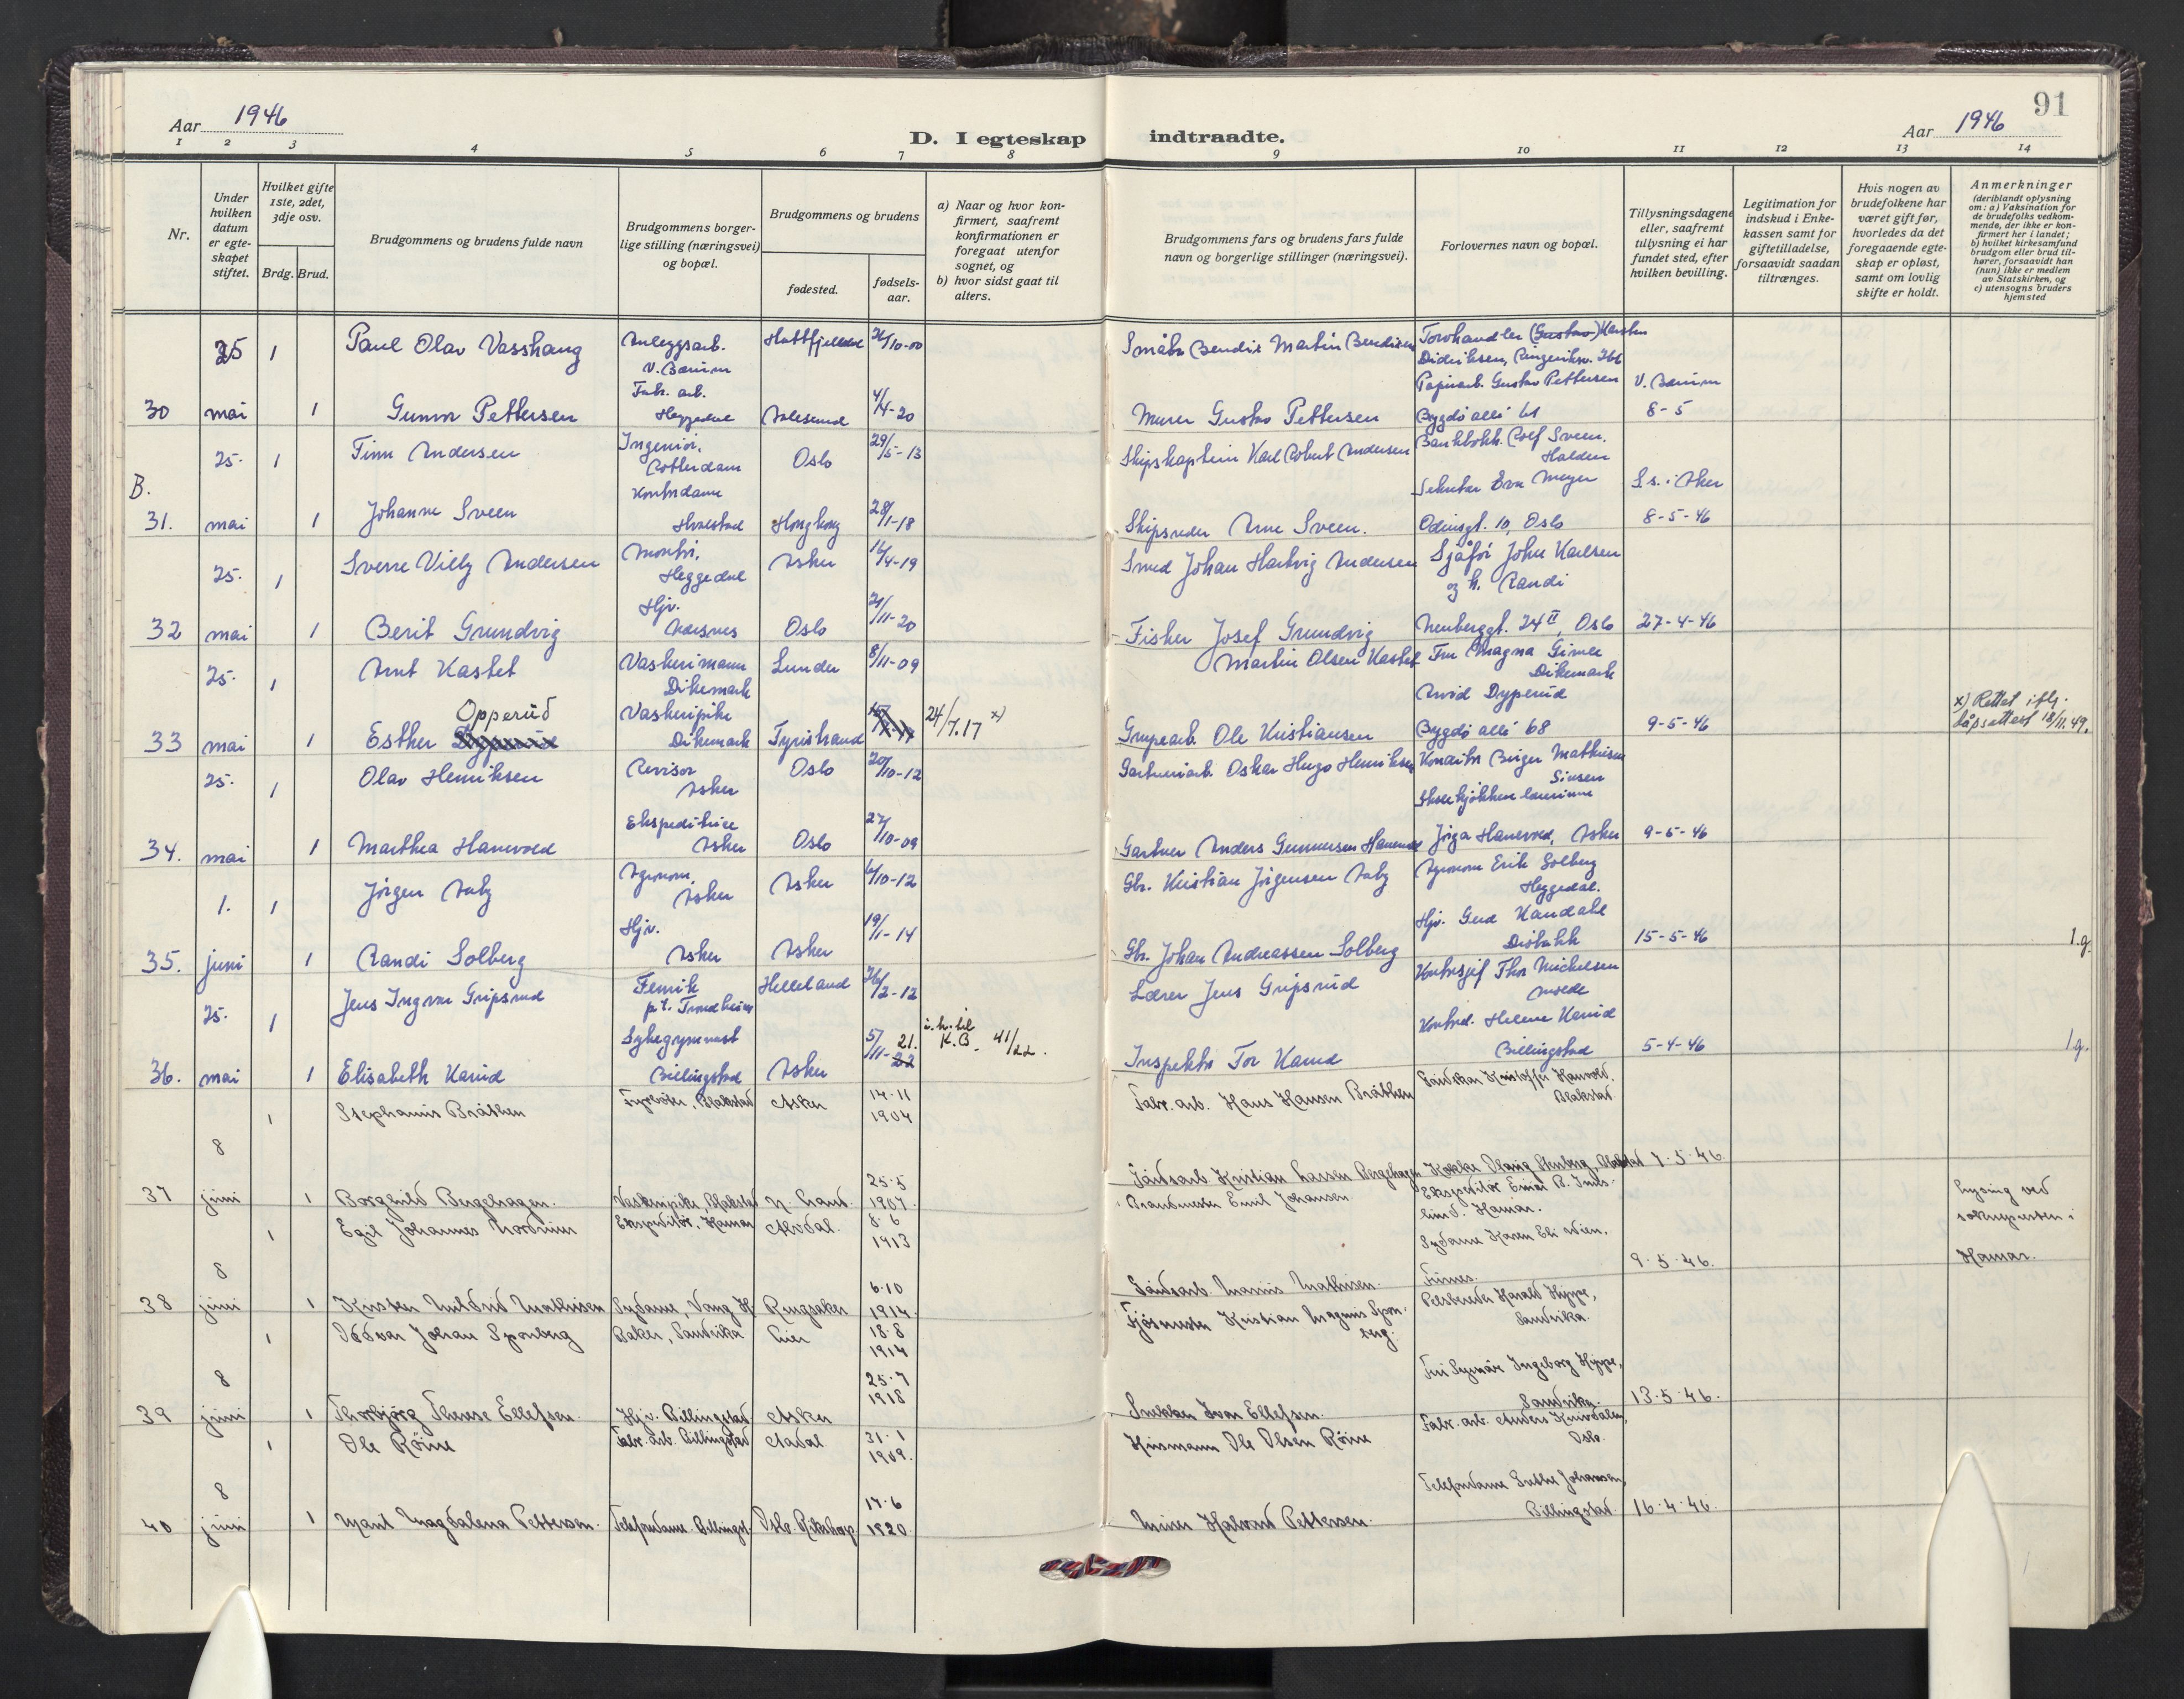 91
Aar 1946
D. I egteskap indtraadte.
Aar 1946
1 2 3 4 5 6 7 8 9 10 11 12 13 14
Nr.
Under hvilken datum er egteskapet stiftet.
Hvilket gifte 1ste, 2det, 3dje osv.
Brdg. Brud.
Brudgommens og brudens fulde navn
Brudgommens borgerlige stilling (næringsvei) og bopæl.
Brudgommens og brudens
fødested.
fødselsaar.
a) Naar og hvor konfirmert, saafremt konfirmationen er foregaat utenfor sognet, og
b) hvor sidst gaat til alters.
Brudgommens fars og brudens fars fulde navn og borgerlige stillinger (næringsvei).
Forlovernes navn og bopæl.
Tillysningsdagene eller, saafremt tillysning ei har fundet sted, efter hvilken bevilling.
Legitimation for indskud i Enkekassen samt for giftetilladelse, forsaavidt saadan tiltrænges.
Hvis nogen av brudefolkene har været gift før, hvorledes da det foregaaende egteskap er opløst, samt om lovlig skifte er holdt.
Anmerkninger (deriblandt oplysning om: a) Vaksination for de brudefolks vedkommende, der ikke er konfirmert her i landet; b) hvilket kirkesamfund brudgom eller brud tilhører, forsaavidt han (hun) ikke er medlem av Statskirken, og c) utensogns bruders hjemsted
25 1 Paul Olav Vasshaug Anleggsarb. V. Bærum Hattfjelldal 26/10-00 Småbr. Bendix Martin Bendixen Torvhandler (Gustav) Karsten
Didriksen, Ringeriksv.
Papirarb. Gustav Pettersen V. Bærum
30 mai 1 Gunvor Pettersen Fabr. arb. Heggedal Aalesund 4/4-20 Murer Gustav Pettersen Bygdø allé 61 8-5
25. 1 Finn Andersen Ingeniør, Rotterdam Oslo 29/5-13 Skipskaptein Karl Robert Andersen Bankbokh. Rolf Sveen. Halden
B.
Kontordame Sekretær Eva Meyer S.s. i Asker
31. mai 1 Johanne Sveen Hvalstad Hongkong 28/1-18 Skipsreder Arne Sveen. Odinsgt. 10, Oslo 8-5-46
25. 1 Sverre Villy Andersen Montør, Heggedal Asker 16/4-19 Smed Johan Hartvig Andersen Sjåfør John Karlsen
og h. Randi
32 mai 1 Berit Grundvig Hjv. Nærsnes Oslo 21/11-20 Fisker Josef Grundvig Neuberggt. 24 II, Oslo 27-4-46
25. 1 Arnt Kastet Vaskerimann Dikemark Lunder 8/11-09 Martin Olsen Kastet Fru Magna Gimle
Dikemark
Arvid Dyperud
33 mai 1 Esther Opperud Vaskeripike Dikemark Tyristrand 24/7.17 x) Grubearb. Ole Kristiansen Bygdø allé 68 9-5-46 x) Rettet iflg. dåpsattest 18/11.49.
25. 1 Olav Henriksen Revisor Asker Oslo 20/10-12 Gartneriarb. Oskar Hugo Henriksen Konditor Birger Mathisen
Sinsen
Skolekjøkkenlærerinne
34. mai 1 Marthea Hanevold Ekspeditrice Asker Oslo 27/10-09 Gartner Anders Gunnersen Hanevold Jørga Hanevold, Asker 9-5-46
1. 1 Jørgen Aaby Agronom, Asker Asker 6/10-12 Gbr. Kristian Jørgensen Aaby Agronom Erik Solberg
Heggedal.
Hjv. Gerd Kandahl
35. juni 1 Randi Solberg Hjv. Asker Asker 19/11-14 Gbr. Johan Andreassen Solberg Drøbakk 15-5-46 1.g.
25. 1 Jens Ingvar Gripsrud Fenrik p.t. Trondheim Helleland 26/2-12 Lærer Jens Gripsrud Kontorsjef Thor Michelsen
Moede
Kontord. Helene Karud
36. mai 1 Elisabeth Karud Sykegymnast Billingstad Asker 5/11-22 21. i.h. til K.B. 41/22. Inspektør Tor Karud Billingstad 5-4-46 1 g.
1 Stephanus Bråthen Fyrbøter, Blakstad Asker 14.11 1904 Fabr. arb. Hans Hansen Bråthen Gårdskar Kristoffer Hanevold, Blakstad.
8
37 juni 1 Borghild Bergehagen. Vaskeripike, Blakstad N. Land. 25.5 1907. Gårdsarb. Kristian Larsen Bergehagen Kokke Solveig Stenberg, Blakstad 7.5.46
1 Egil Johannes Nordmin Ekspeditør, Hamar Alvdal. 8.6 1913 Brandmester Emil Johansen. Ekspeditør Einar B.
Hamar. Sydame Karen Eli Odien,
Furnes.
8
38 juni 1 Kirsten Mildrid Mathisen Sydame, Vang H. Ringsaker 6.10 1914. Gårdsarb. Marius Mathisen. 9.5.46. Lysing ved soknepresten i Hamar.
1 Oddvar Johan Sponberg Baker, Sandvika Lier 18.8 1914 Fjøsmester Kristian Magnus Sponberg. Pelsbereder Harald Hyppe, Sandvika.
8
39 juni 1 Thorbjørg Therese Ellefsen. Hjv. Billingstad Asker 25.7 1918 Snekker Ivar Ellefsen. Fru Ingeborg Hyppe, Sandvika. 13.5.46.
1 Ole Röine Fabr. arb. Billingstad Aadal 31.1 1909. Husmann Ole Olsen Röine Fabr. arb. Anders Knivedalen, Oslo.
8
40 juni 1 Marit Magdalena Pettersen. Telefondame. Billingst. Oslo. Rikshosp. 17.6 1920. Murer Halvard Pettersen. Telefondame Grethe Johansen, Billingstad. 16.4.46.